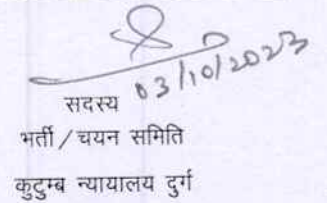 03/10/2023
सदस्य
भर्ती / चयन समिति
कुटुम्ब न्यायालय दुर्ग